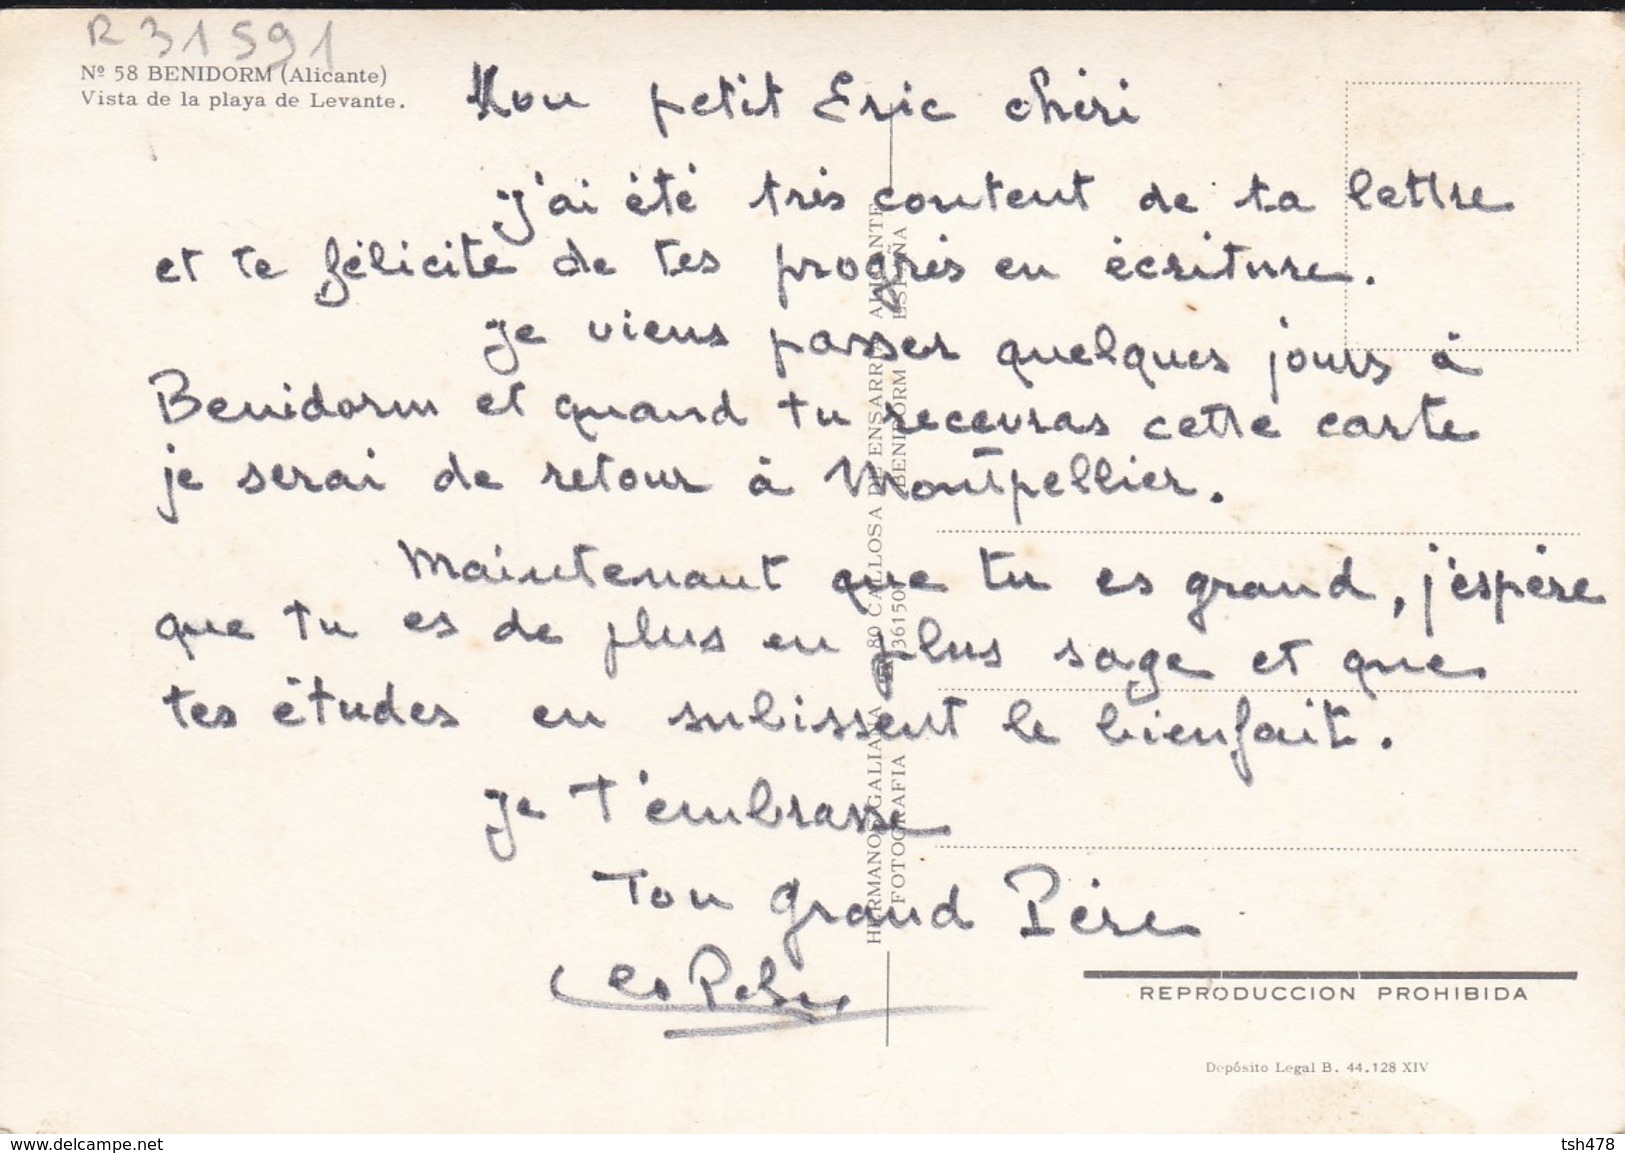 R 31591
Nº 58 BENIDORM (Alicante)
Vista de la playa de Levante.
Mon petit Eric chéri
J'ai été très content de ta lettre
et te félicite de tes progrès en écriture.
Je viens passer quelques jours à
Benidorm et quand tu recevras cette carte
je serai de retour à Montpellier.
Maintenant que tu es grand, j'espère
que tu es de plus en plus sage et que
tes études en subissent le bienfait.
Je t'embrasse
Ton Grand Père
HERMANOS GALIANA
80 CALLOSA DE ENSARRIA ALICANTE
FOTOGRAFIA
361504 BENIDORM ESPAÑA
REPRODUCCION PROHIBIDA
Depósito Legal B. 44.128 XIV
www.delcampe.net
tsh478